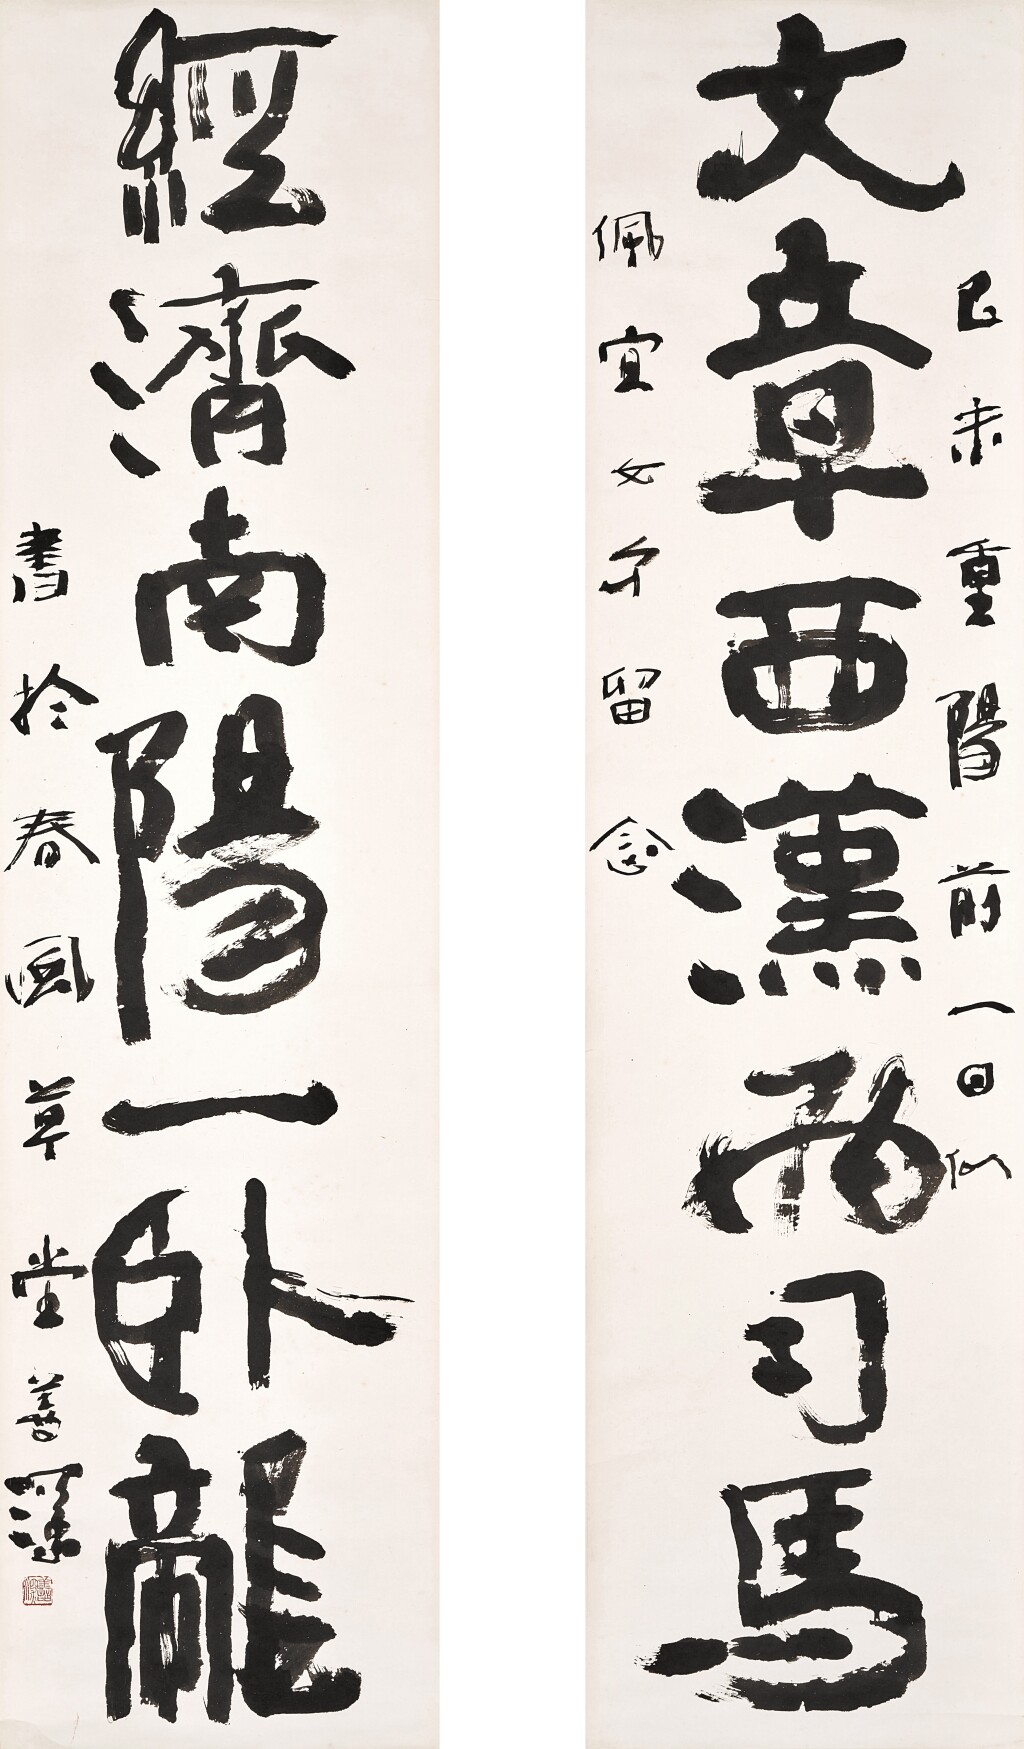 己未重陽前一日似
文章西漢兩司馬
佩宜女弟留念
經濟南陽一臥龍
書於春風草堂善深